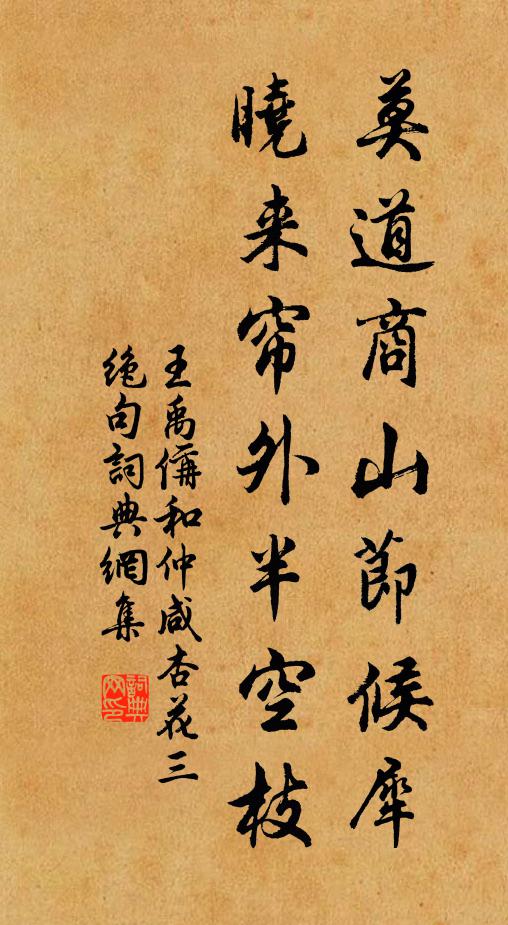 莫道商山節候犀
曉来帘外半空枝
王禹偁和仲咸杏花三
絶句詞典網集
詞典网印